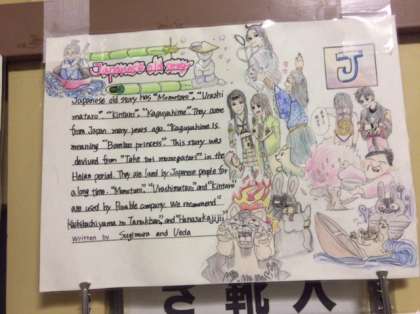 Japanese old story
J
Japanese old story has "Momotaro", "Urashi
mataro" "kintaro" "Kaguyahime". They came
from Japan many years ago. "Kaguyahime is
meaning "Bamboo princess". This story was
derived from "Take tori monogatari" in the
Heian period. They are loved by Japanese people for
a long time. "Momotaro", "Urashimataro" and "Kintaro
are used by Famous company. We recommend
"Kachikachiyama no Tanukisan", and "Hanasakajijii"
Written by Sugimura and Ueda